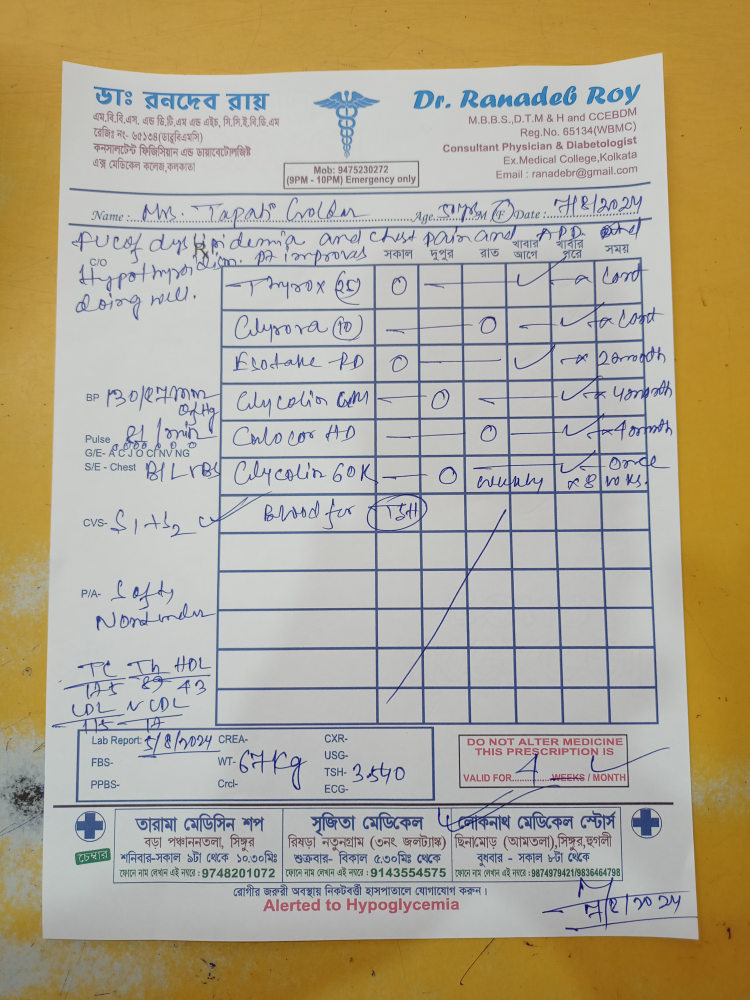 ডাঃ রনদেব রায়
এম.বি.বি.এস. এন্ড ডি.টি.এম এন্ড এইচ, সি.সি.ই.বি.ডি.এম
রেজিঃ নং- ৬৫১৩৪(ডাব্লুবিএমসি)
কনসালটেন্ট ফিজিসিয়ান এন্ড ডায়াবেটোলজিষ্ট
এক্স মেডিকেল কলেজ, কলকাতা
Mob: 9475230272
(9PM - 10PM) Emergency only
Dr. Ranadeb Roy
M.B.B.S.,D.T.M & H and CCEBDM
Reg.No. 65134(WBMC)
Consultant Physician & Diabetologist
Ex.Medical College,Kolkata
Email : ranadebr@gmail.com
Name : Mrs. Tapati Age. M (F) Date : 7/8/2024
FUC of dyslipidemia and chest pain and APD and
C/O Hypothyroidism. pt improves
doing well.
Rx
সকাল দুপুর রাত খাবার আগে খাবার পরে সময়
Thyrox (25) O — — ✓ — Cont
(10) — — O — ✓ Cont
RD O — — ✓ — 2 month
— O — — ✓ 4 month
— — O — ✓ 4 month
60K — O weekly ✓ x 8 once wks.
Blood for TSH
BP 130/87 mm of Hg
Pulse 81/min
G/E- A C J O CI NV NG
S/E - Chest B/L VBS
CVS- S1+S2 ✓
P/A- Soft,
Nontender
TC HDL
175 89 43
LDL
115 17
Lab Report: 5/8/2024 CREA- CXR-
FBS- WT- 67kg USG-
TSH- 3.540
PPBS- Crcl- ECG-
DO NOT ALTER MEDICINE
THIS PRESCRIPTION IS
VALID FOR 4 WEEKS / MONTH
চেম্বার
তারামা মেডিসিন শপ
বড়া পঞ্চাননতলা, সিঙ্গুর
শনিবার-সকাল ৯টা থেকে ১০.৩০মিঃ
ফোনে নাম লেখান এই নম্বরে : 9748201072
সৃজিতা মেডিকেল
রিষড়া নতুনগ্রাম (৩নং জলট্যাঙ্ক)
শুক্রবার- বিকাল ৫.৩০মিঃ থেকে
ফোনে নাম লেখান এই নম্বরে : 9143554575
লোকনাথ মেডিকেল স্টোর্স
ছিনামোড় (আমতলা),সিঙ্গুর,হুগলী
বুধবার - সকাল ৮টা থেকে
ফোনে নাম লেখান এই নম্বরে : 9874979421/9836464798
রোগীর জরুরী অবস্থায় নিকটবর্ত্তী হাসপাতালে যোগাযোগ করুন।
Alerted to Hypoglycemia
7/8/2024